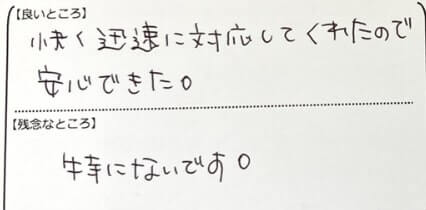 【良いところ】
快く迅速に対応してくれたので
安心できた。
【残念なところ】
特にないです。